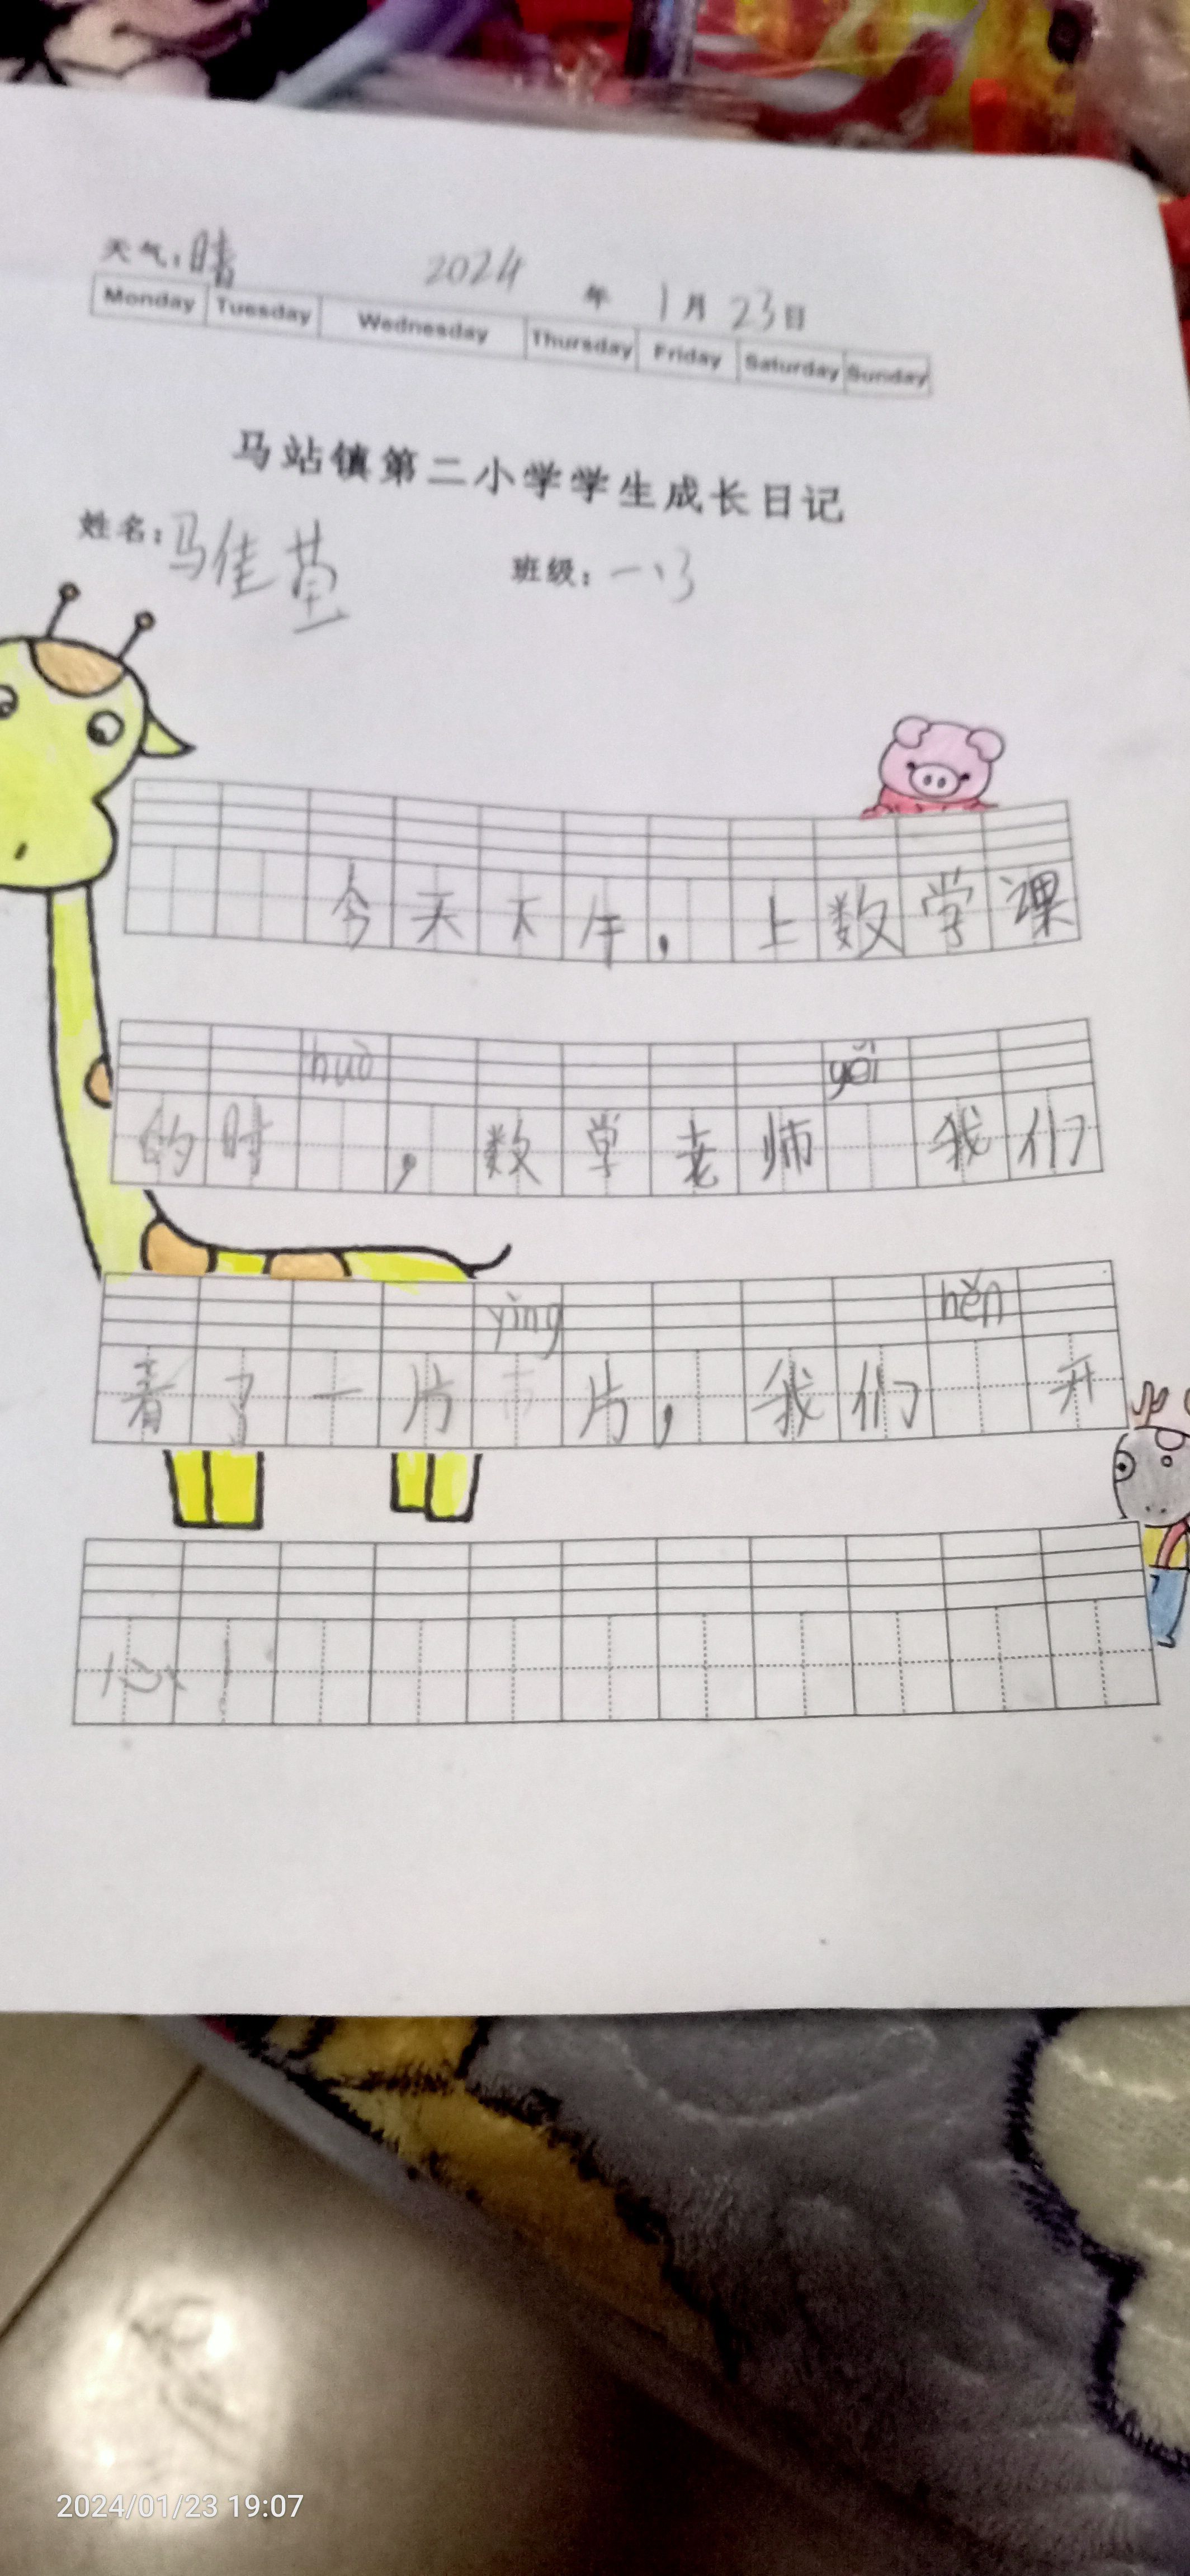 天气:晴 2024 年 1月 23日
Monday Tuesday Wednesday Thursday Friday Saturday Sunday
马站镇第二小学学生成长日记
姓名:马佳 班级:一、3
今天下午,上数学课
huò yǒi
的时 ,数学老师 我们
yìng hěn
看了一片 片,我们 开
心!
2024/01/23 19:07